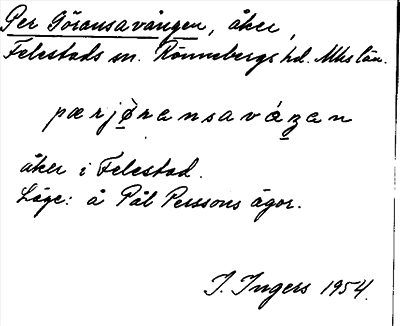 Per Göransavången, åker,
Felestads sn. Rönnebergs hd. Mhs län.
pærjøransavázan
åker i Felestad.
Läge: å Pål Perssons ägor.
I. Ingers 1954.